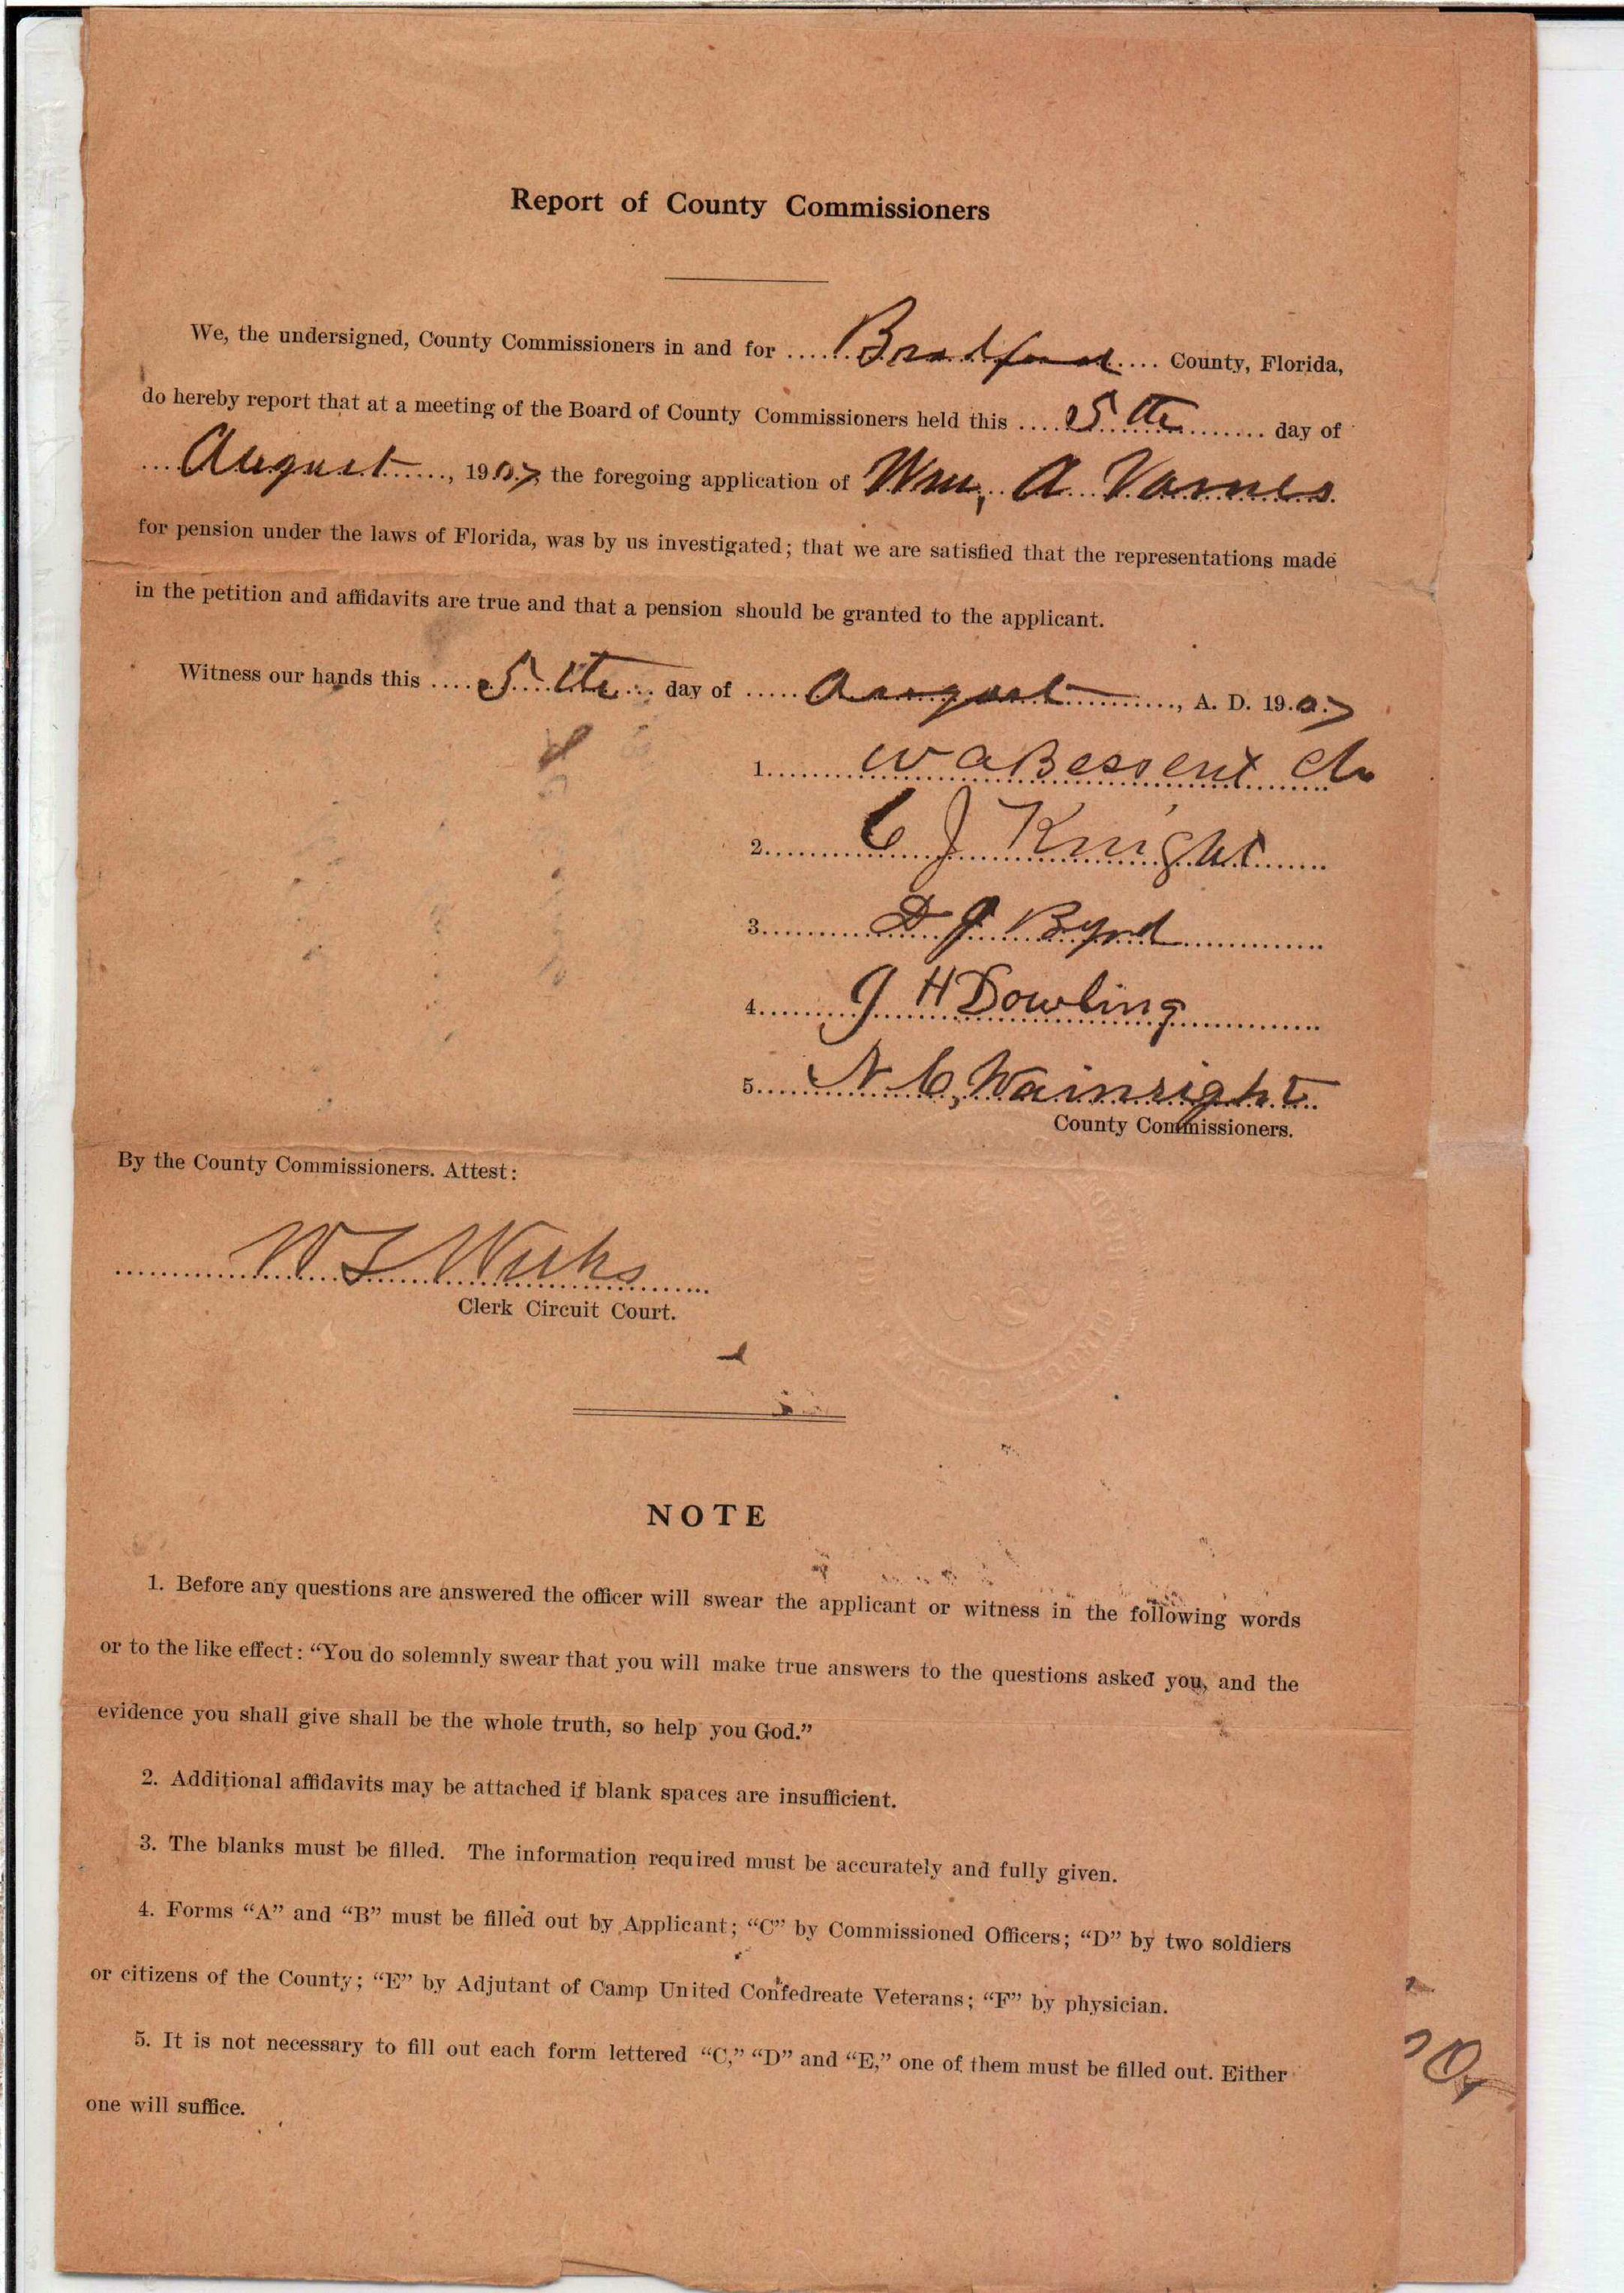 Report of County Commissioners
We, the undersigned, County Commissioners in and for Bradford County, Florida,
do hereby report that at a meeting of the Board of County Commissioners held this 5th day of
August, 1907, the foregoing application of Wm, A Varnes
for pension under the laws of Florida, was by us investigated; that we are satisfied that the representations made
in the petition and affidavits are true and that a pension should be granted to the applicant.
Witness our hands this 5th day of August, A. D. 1907
1. W A Bessent Ch
2. C J Knight
3. D J Byrd
4. J H Dowling
5. N C, Wainright
County Commissioners.
By the County Commissioners. Attest:
W L Weeks
Clerk Circuit Court.
NOTE
1. Before any questions are answered the officer will swear the applicant or witness in the following words
or to the like effect: “You do solemnly swear that you will make true answers to the questions asked you, and the
evidence you shall give shall be the whole truth, so help you God.”
2. Additional affidavits may be attached if blank spaces are insufficient.
3. The blanks must be filled. The information required must be accurately and fully given.
4. Forms “A” and “B” must be filled out by Applicant; “C” by Commissioned Officers; “D” by two soldiers
or citizens of the County; “E” by Adjutant of Camp United Confedreate Veterans; “F” by physician.
5. It is not necessary to fill out each form lettered “C,” “D” and “E,” one of them must be filled out. Either
one will suffice.